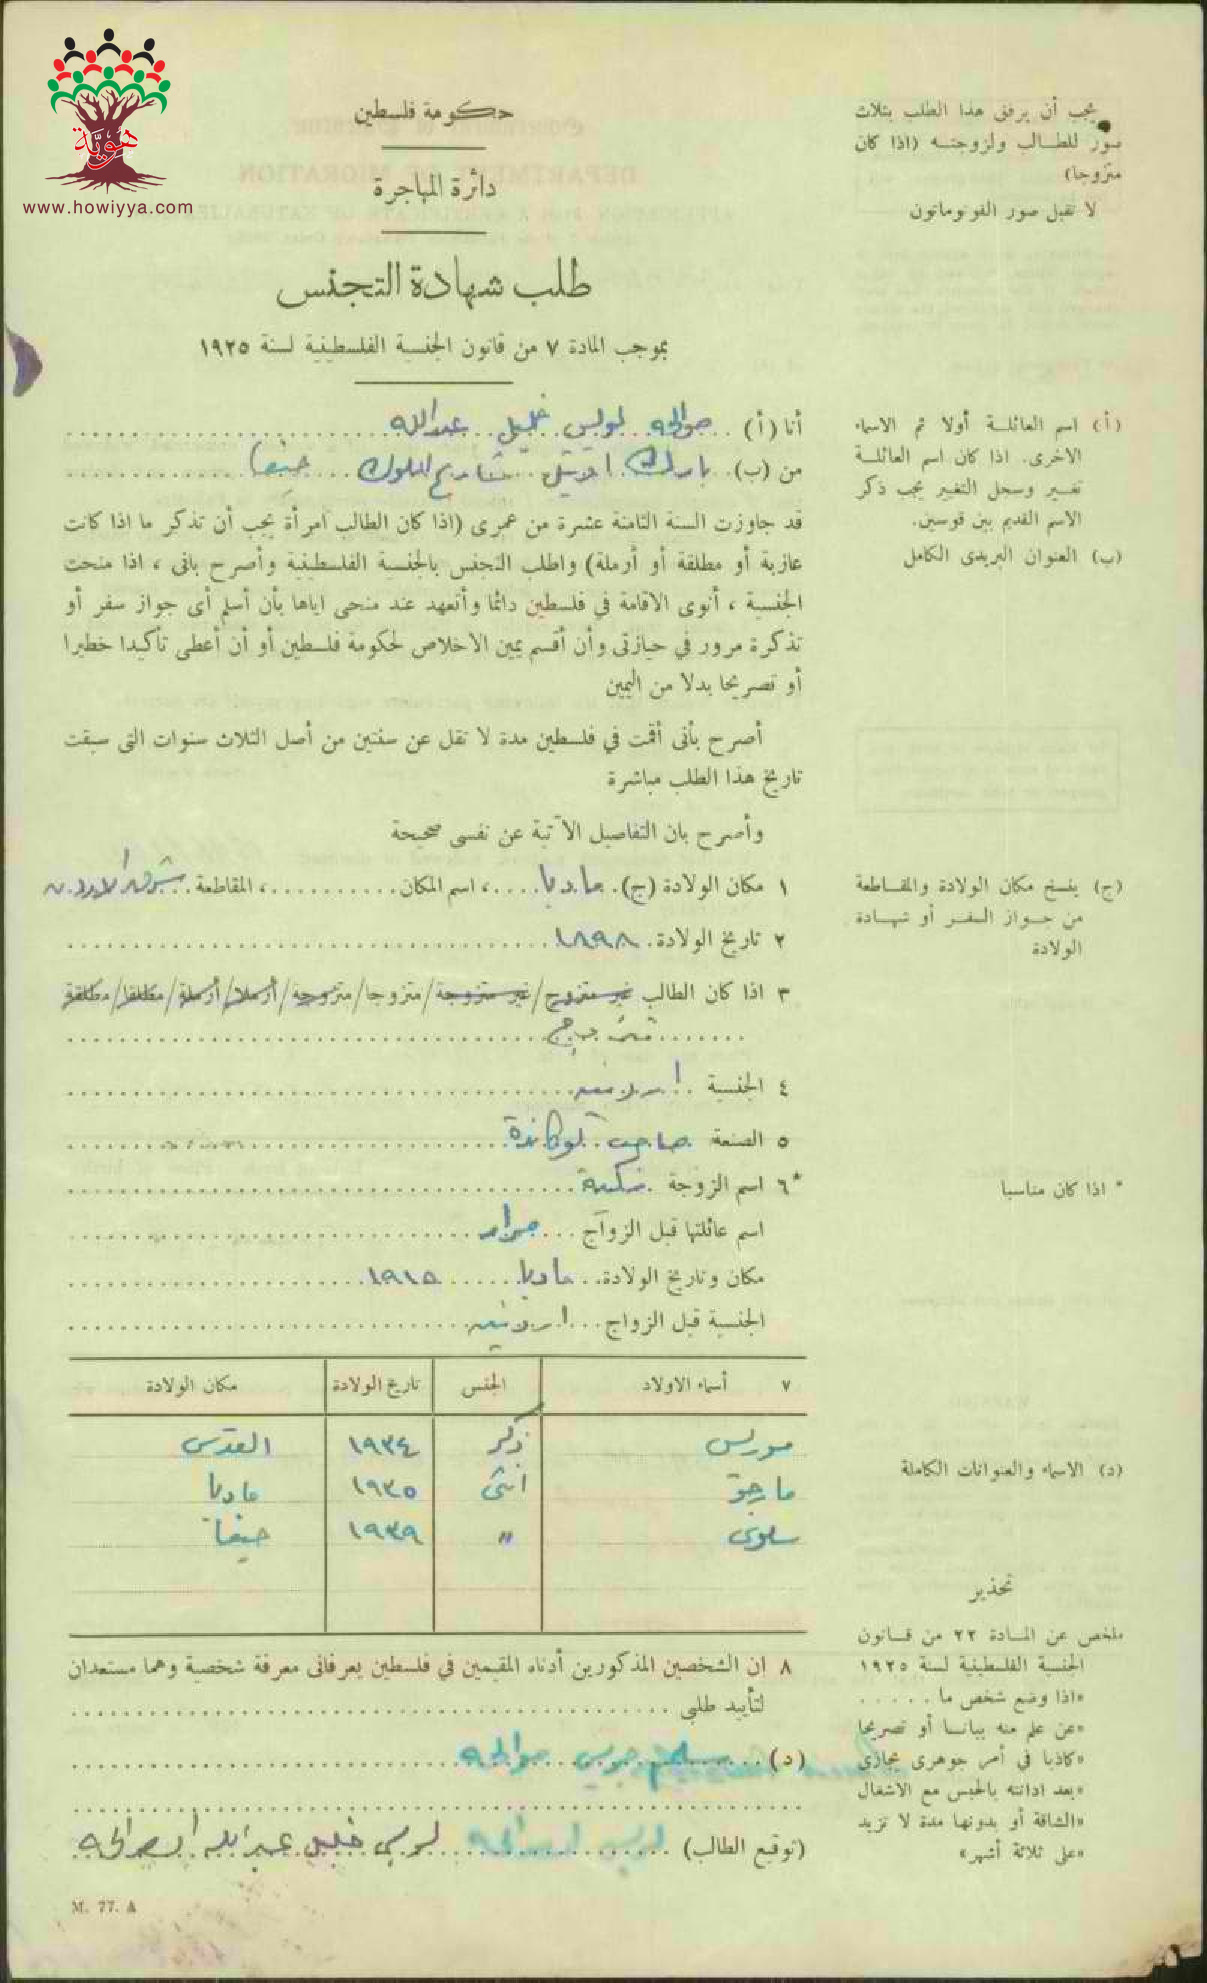 هويّة
www.howiyya.com
حكومة فلسطين
دائرة المهاجرة
طلب شهادة التجنس
بموجب المادة ٧ من قانون الجنسية الفلسطينية لسنة ١٩٢٥
يجب أن يرفق هذا الطلب بثلاث
صور للطالب ولزوجته (اذا كان
متزوجا)
لا تقبل صور الفوتوماتون
أنا (أ) صوالحه لويس خليل عبدالله
من (ب) بارك اوتيل شارع الملوك حيفا
قد جاوزت السنة الثامنة عشرة من عمرى (اذا كان الطالب امرأة يجب أن تذكر ما اذا كانت
عازبة أو مطلقة أو أرملة) واطلب التجنس بالجنسية الفلسطينية وأصرح بانى ، اذا منحت
الجنسية ، أنوى الاقامة في فلسطين دائما وأتعهد عند منحى اياها بأن أسلم أى جواز سفر أو
تذكرة مرور في حيازتى وأن أقسم يمين الاخلاص لحكومة فلسطين أو أن أعطى تأكيدا خطيرا
أو تصريحا بدلا من اليمين
أصرح بأنى أقمت في فلسطين مدة لا تقل عن سنتين من أصل الثلاث سنوات التى سبقت
تاريخ هذا الطلب مباشرة
وأصرح بان التفاصيل الآتية عن نفسى صحيحة
(أ) اسم العائلة أولا ثم الاسماء
الاخرى. اذا كان اسم العائلة
تغير وسجل التغيير يجب ذكر
الاسم القديم بين قوسين.
(ب) العنوان البريدى الكامل
١ مكان الولادة (ج) مادبا ، اسم المكان ، المقاطعة شرق الاردن
٢ تاريخ الولادة ١٨٩٨
٣ اذا كان الطالب غير متزوج/غير متزوجة/متزوجا/متزوجة/أرملا/أرملة/مطلقا/مطلقة
٤ الجنسية اردنيه
٥ الصنعة صاحب لوكاندة
*٦ اسم الزوجة
اسم عائلتها قبل الزواج
مكان وتاريخ الولادة مادبا ١٩١٥
الجنسية قبل الزواج اردنيه
(ج) ينسخ مكان الولادة والمقاطعة
من جواز السفر أو شهادة
الولادة
* اذا كان مناسبا
٧ أسماء الاولاد الجنس تاريخ الولادة مكان الولادة
موريس ذكر ١٩٣٤ القدس
مارجو انثى ١٩٣٥ مادبا
سلوى " ١٩٣٩ حيفا
٨ ان الشخصين المذكورين أدناه المقيمين في فلسطين يعرفانى معرفة شخصية وهما مستعدان
لتأييد طلبى
(د) جريس صوالحه
(توقيع الطالب) لويس خليل عبدالله الصوالحه
(د) الاسماء والعنوانات الكاملة
تحذير
ملخص عن المادة ٢٢ من قانون
الجنسية الفلسطينية لسنة ١٩٢٥
«اذا وضع شخص ما . . . . .
«عن علم منه بيانا أو تصريحا
«كاذبا في أمر جوهرى يجازى
«بعد ادانته بالحبس مع الاشغال
«الشاقة أو بدونها مدة لا تزيد
«على ثلاثة أشهر»
M. 77. A